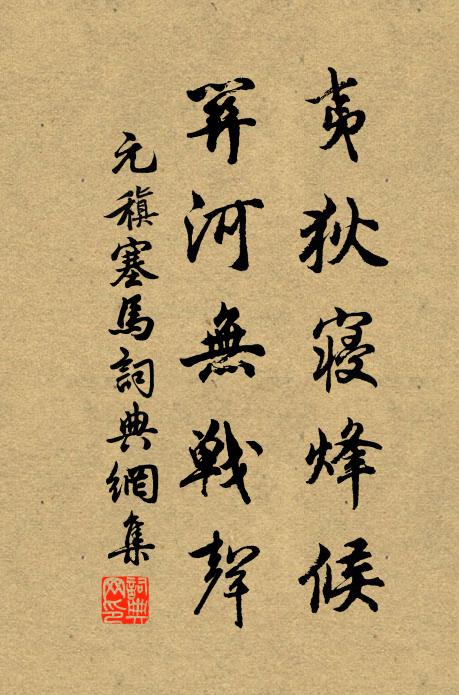 夷狄寝烽候
關河無戰聲
元稹塞馬詞典網集
詞典网印